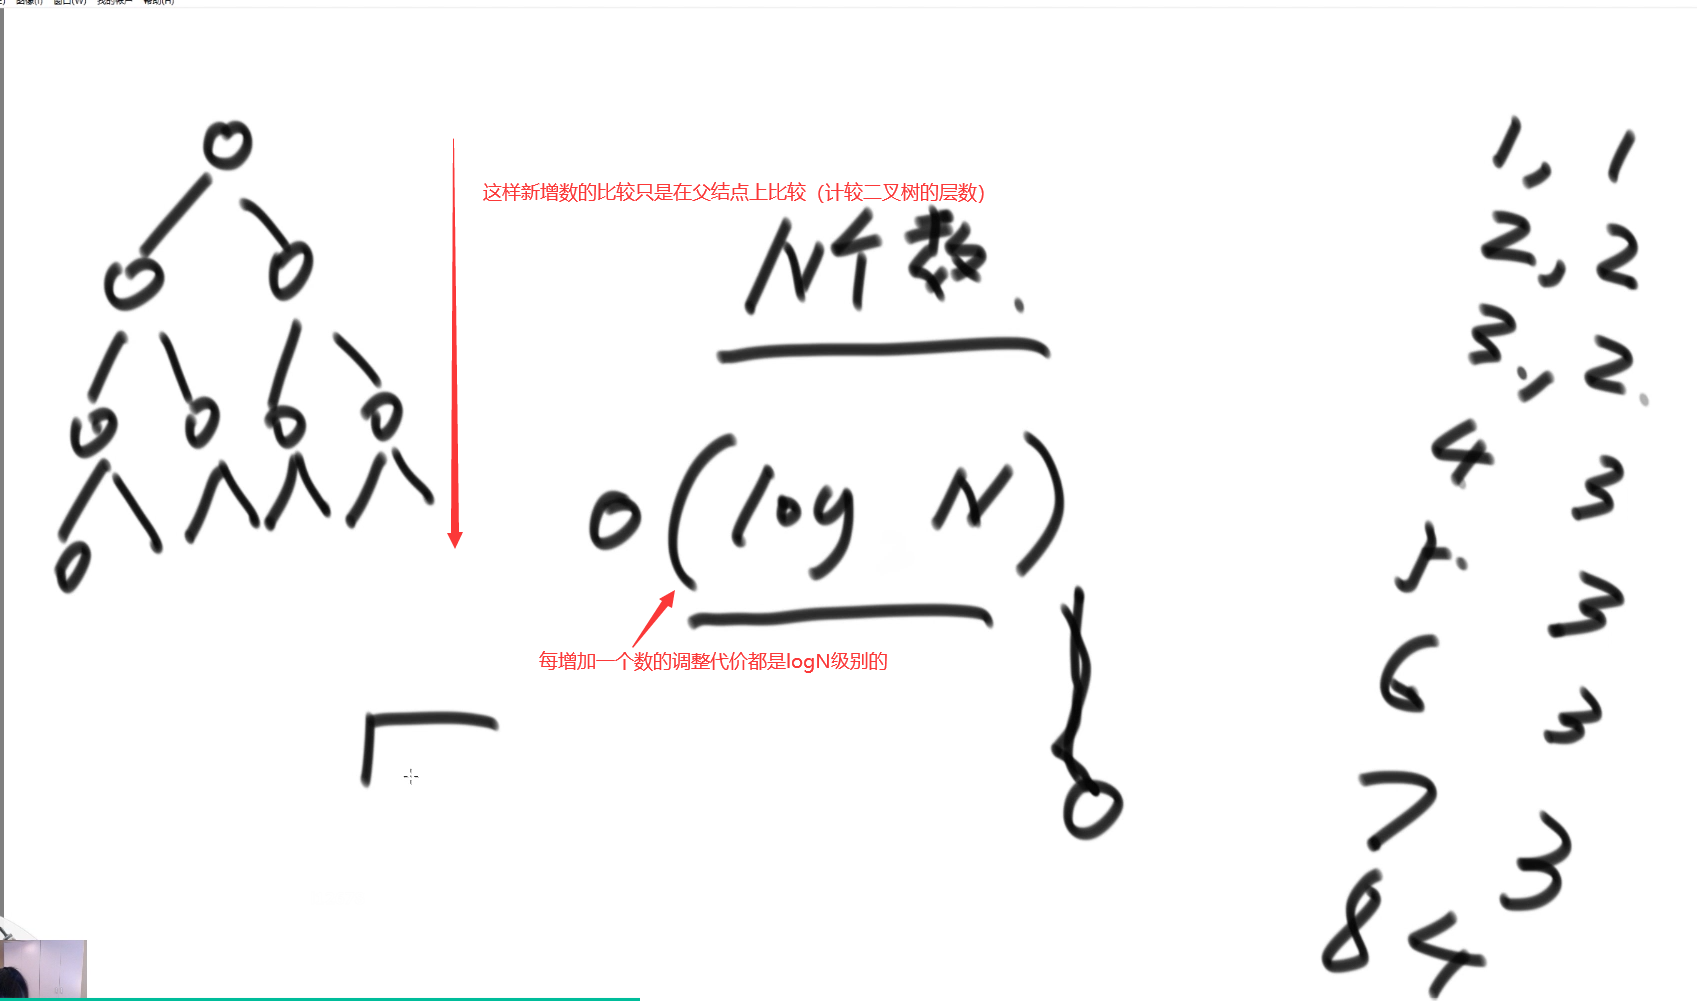 图像(I) 窗口(W) 我的帐户 帮助(H)
这样新增数的比较只是在父结点上比较（计较二叉树的层数）
N个数.
O(log N)
每增加一个数的调整代价都是logN级别的
1, 1
2, 2
3, 2
4 3
5 3
6 3
7 3
8 4